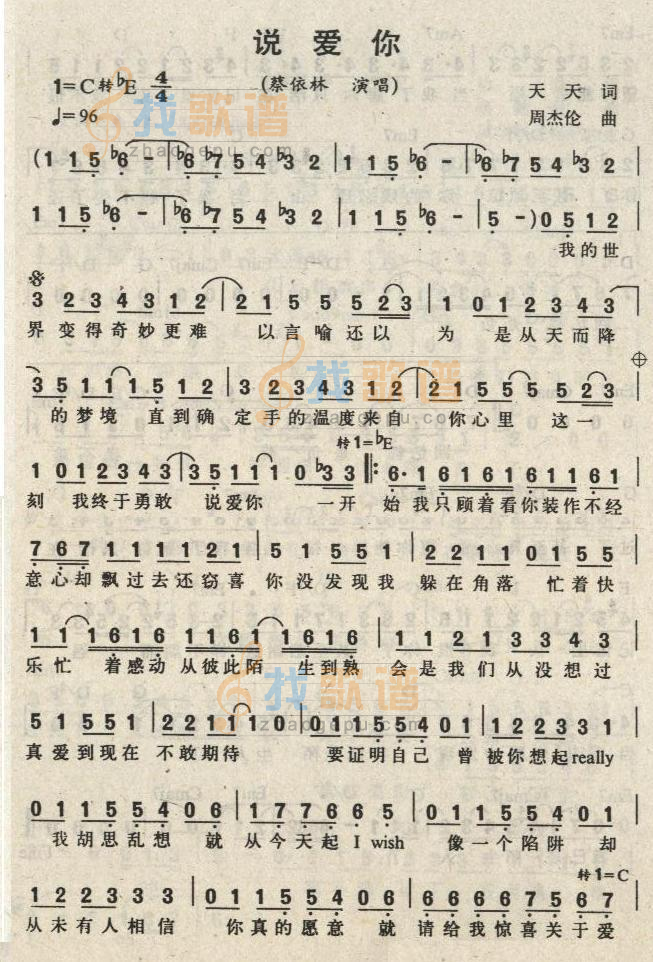 说爱你
1=C转♭E 4/4
(蔡依林 演唱)
天天 词
♩=96
周杰伦 曲
找歌谱
zhaogepu.com
(1 1 5 ♭6 - | ♭6 ♭7 5 4 ♭3 2 | 1 1 5 ♭6 - | ♭6 ♭7 5 4 ♭3 2
1 1 5 ♭6 - | ♭6 ♭7 5 4 ♭3 2 | 1 1 5 ♭6 - | 5 - ) 0 5 1 2
我的世
3 2 3 4 3 1 2 | 2 1 5 5 5 2 3 | 1 0 1 2 3 4 3
界 变得奇妙更难 以言喻还以 为 是从天而降
3 5 1 1 1 5 1 2 | 3 2 3 4 3 1 2 | 2 1 5 5 5 5 2 3
的梦境 直到确 定手的温度来自 你心里 这一
找歌谱
zhaogepu.com
转1=♭E
1 0 1 2 3 4 3 | 3 5 1 1 1 0 ♭3 3 ‖: 6· 1 6 1 6 1 6 1 1 6 1
刻 我终于勇敢 说爱你 一开 始 我只顾着看你装作不经
7 6 7 1 1 1 1 2 1 | 5 1 5 5 1 | 2 2 1 1 0 1 5 5
意心却飘过去还窃喜 你没发现我 躲在角落 忙着快
1 1 1 6 1 6 1 1 6 1 1 6 1 6 | 1 1 2 1 3 3 4 3
乐忙 着感动 从彼此陌 生到熟 会是我们从没想过
找歌谱
zhaogepu.com
5 1 5 5 1 | 2 2 1 1 1 0 | 0 1 1 5 5 4 0 1 | 1 2 2 3 3 1
真爱到现在 不敢期待 要证明自己 曾 被你想起really
0 1 1 5 5 4 0 6 | 1 7 7 6 6 5 | 0 1 1 5 5 4 0 1
我胡思乱想 就 从今天起 I wish 像一个陷阱 却
转1=C
1 2 2 3 3 3 | 0 1 1 5 5 4 0 6 | 6 6 6 6 7 5 6 7
从未有人相信 你真的愿意 就 请给我惊喜关于爱